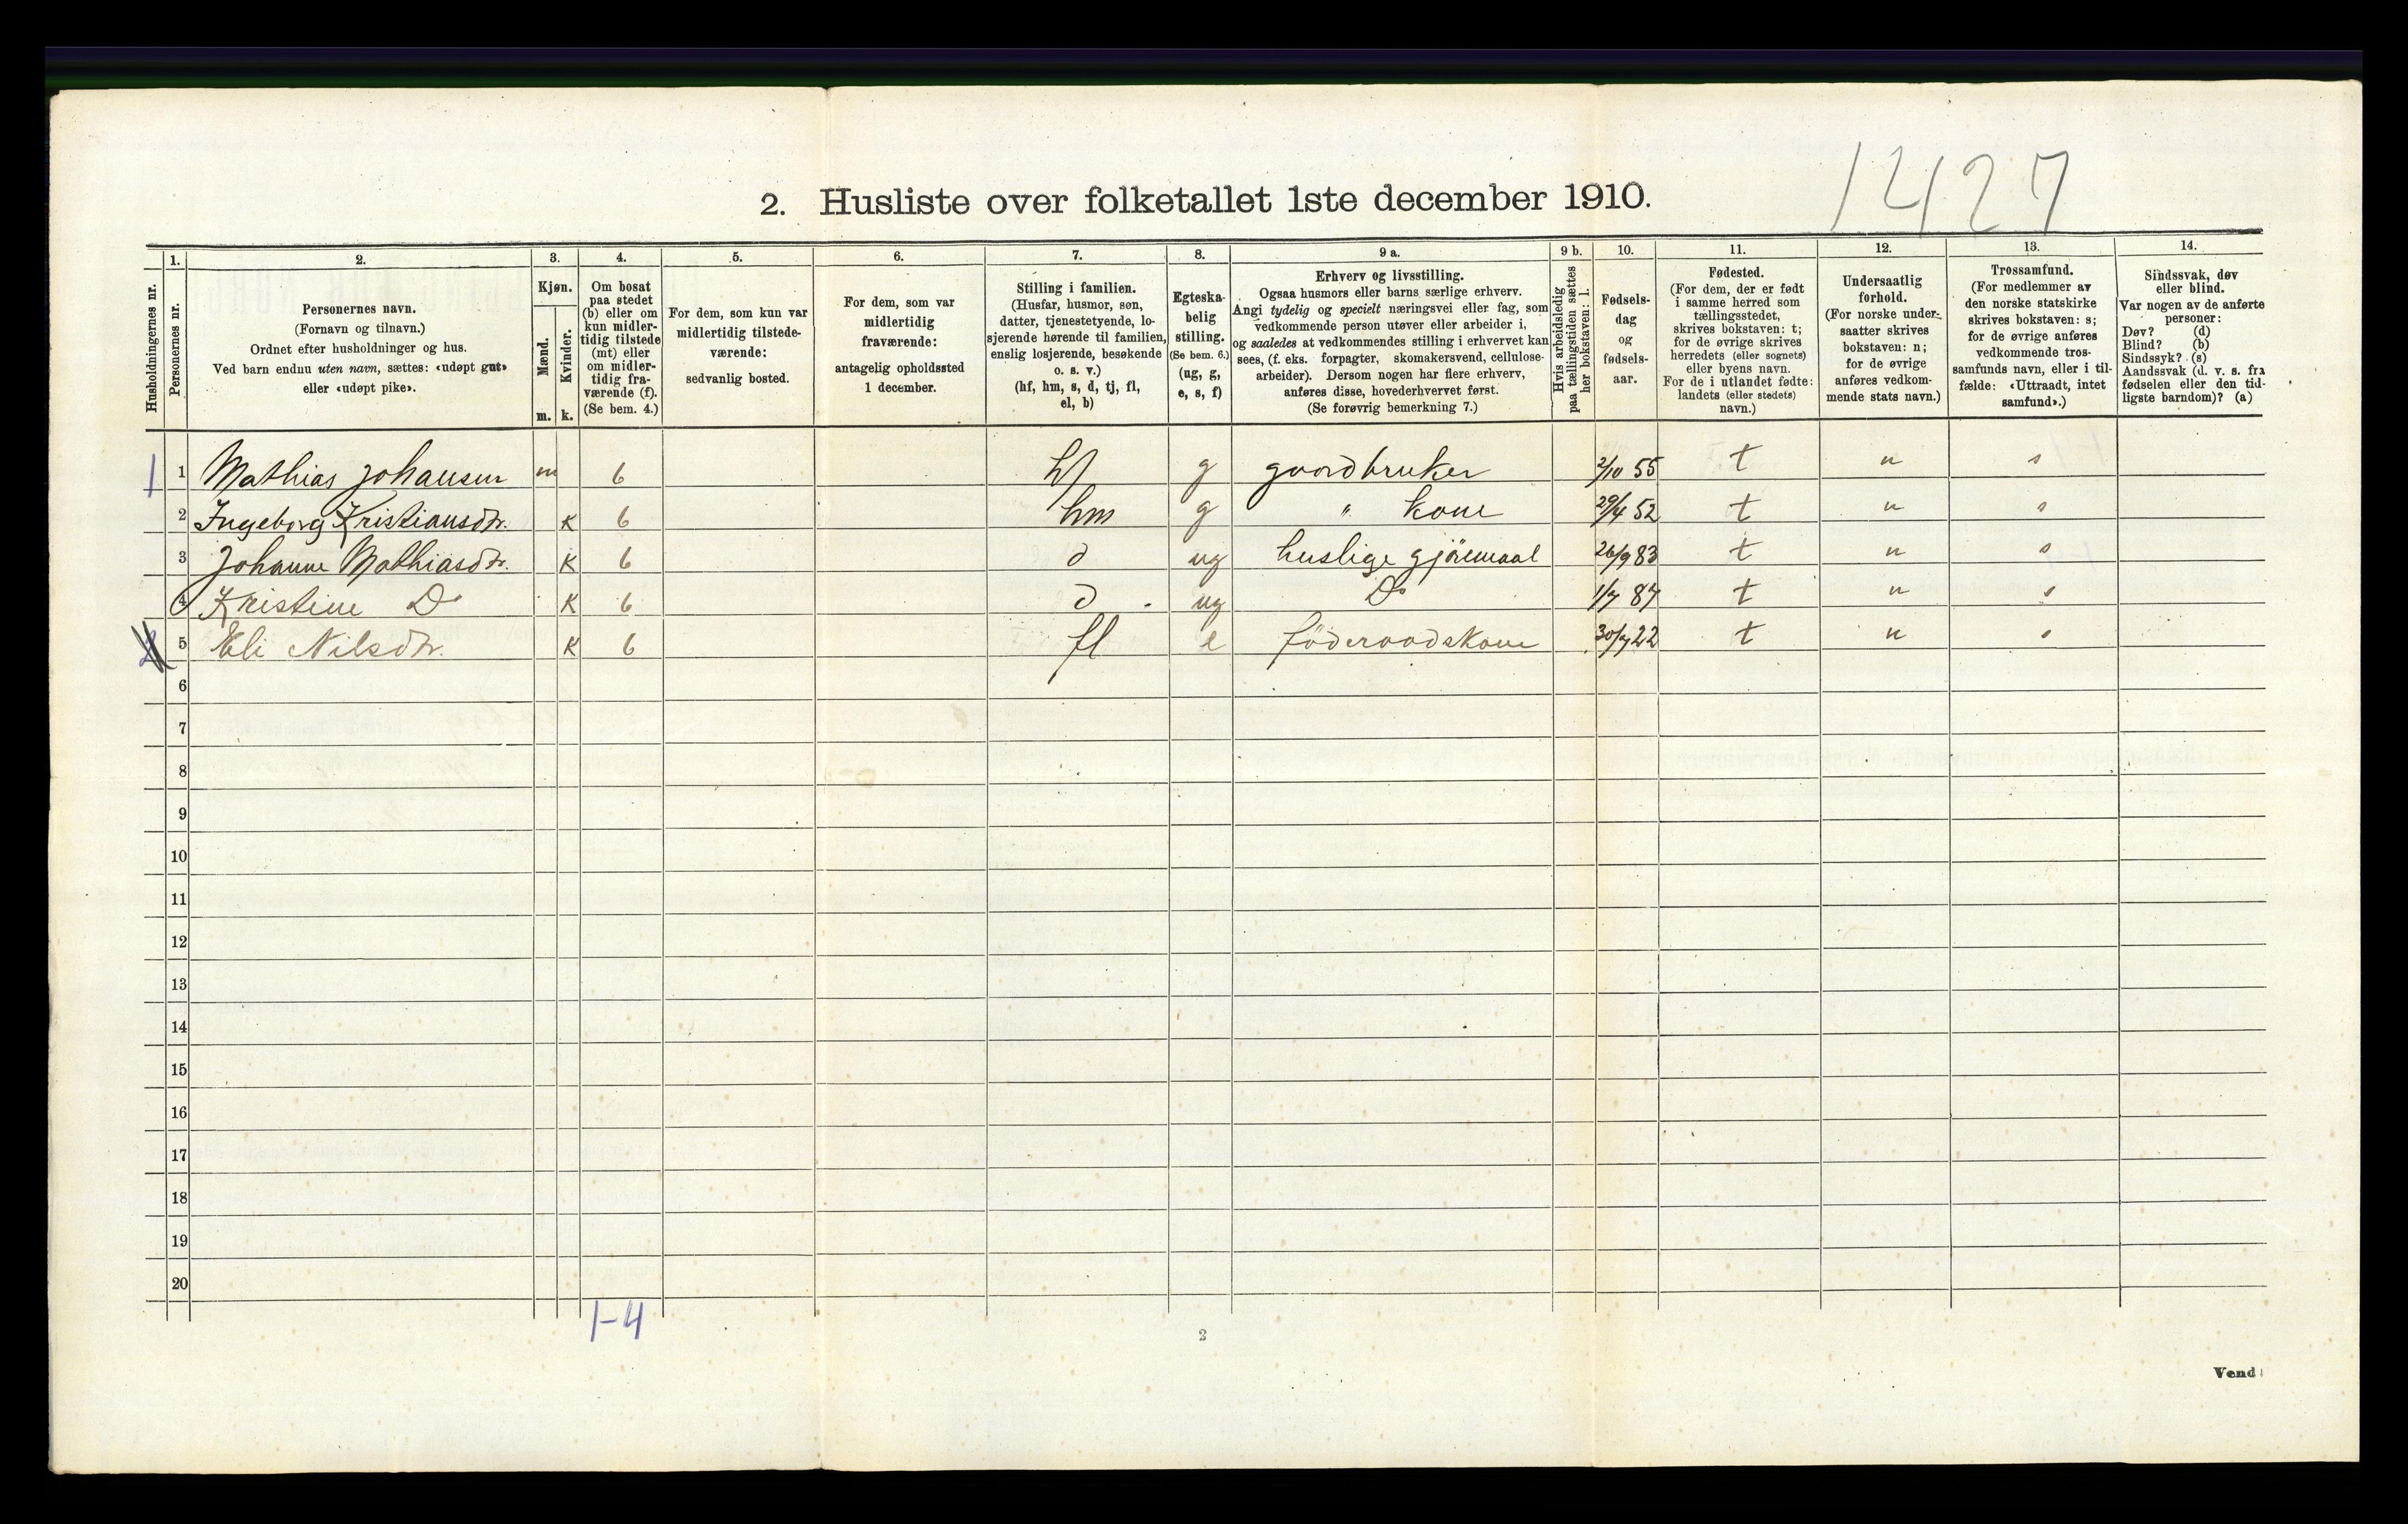 1427
2. Husliste over folketallet 1ste december 1910.
Husholdningernes nr.
1.
Personernes nr.
2.
Personernes navn.
(Fornavn og tilnavn.)
Ordnet efter husholdninger og hus.
Ved barn endnu uten navn, sættes: «udøpt gut»
eller «udøpt pike».
3.
Kjøn.
Mænd.
Kvinder.
m. k.
4.
Om bosat
paa stedet
(b) eller om
kun midler-
tidig tilstede
(mt) eller
om midler-
tidig fra-
værende (f).
(Se bem. 4.)
5.
For dem, som kun var
midlertidig tilstede-
værende:
sedvanlig bosted.
6.
For dem, som var
midlertidig
fraværende:
antagelig opholdssted
1 december.
7.
Stilling i familien.
(Husfar, husmor, søn,
datter, tjenestetyende, lo-
sjerende hørende til familien,
enslig losjerende, besøkende
o. s. v.)
(hf, hm, s, d, tj, fl,
el, b)
8.
Egteska-
belig
stilling.
(Se bem. 6.)
(ug, g,
e, s, f)
9 a.
Erhverv og livsstilling.
Ogsaa husmors eller barns særlige erhverv.
Angi tydelig og specielt næringsvei eller fag, som
vedkommende person utøver eller arbeider i,
og saaledes at vedkommendes stilling i erhvervet kan
sees, (f. eks. forpagter, skomakersvend, cellulose-
arbeider). Dersom nogen har flere erhverv,
anføres disse, hovederhvervet først.
(Se forøvrig bemerkning 7.)
9 b.
Hvis arbeidsledig
paa tællingstiden sættes
her bokstaven: l.
10.
Fødsels-
dag
og
fødsels-
aar.
11.
Fødested.
(For dem, der er født
i samme herred som
tællingsstedet,
skrives bokstaven: t;
for de øvrige skrives
herredets (eller sognets)
eller byens navn.
For de i utlandet fødte:
landets (eller stedets)
navn.)
12.
Undersaatlig
forhold.
(For norske under-
saatter skrives
bokstaven: n;
for de øvrige
anføres vedkom-
mende stats navn.)
13.
Trossamfund.
(For medlemmer av
den norske statskirke
skrives bokstaven: s;
for de øvrige anføres
vedkommende tros-
samfunds navn, eller i til-
fælde: «Uttraadt, intet
samfund».)
14.
Sindssvak, døv
eller blind.
Var nogen av de anførte
personer:
Døv? (d)
Blind? (b)
Sindssyk? (s)
Aandssvak (d. v. s. fra
fødselen eller den tid-
ligste barndom)? (a)
1 1 Mathias Johansen m 6 hf g gaardbruker 2/10 55 t n s
2 Ingeborg Kristiansdtr. K 6 hm g " kone 29/4 52 t n s
3 Johanne Mathiasdtr. K 6 d ug huslige gjöremaal 26/9 83 t n s
4 Kristine Do K 6 d ug Do 1/7 87 t n s
5 Eli Nilsdtr. K 6 fl e föderaadskone 30/7 22 t n s
6
7
8
9
10
11
12
13
14
15
16
17
18
19
20
1-4
2
Vend